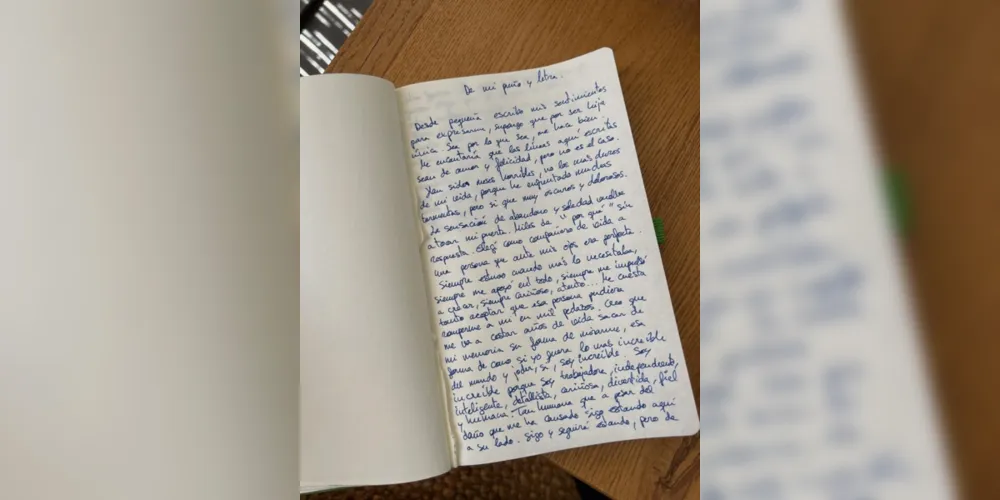 De mi puño y letra.
Desde pequeña escribo mis sentimientos
para expresarme, supongo que por ser hija
única. Sea por lo que sea, me hace bien.
Me encantaría que las líneas aquí escritas
sean de amor y felicidad, pero no es el caso.
Han sidos meses horribles, no los más duros
de mi vida, porque he enfrentado muchas
tormentas, pero si que muy oscuros y dolorosos.
La sensación de abandono y soledad vuelve
a tocar mi puerta. Miles de "por qué" sin
respuesta. Elegí como compañero de vida a
una persona que ante mis ojos era perfecta.
Siempre estuvo cuando más lo necesitaba,
siempre me apoyó en todo, siempre me impulsó
a crear, siempre cariñoso, atento... Me cuesta
tanto aceptar que esa persona pudiera
romperme a mi en mil pedazos. Creo que
me va a costar años de vida sacar de
mi memoria su forma de mirarme, esa
forma de como si yo fuera lo más increíble
del mundo y joder, si, soy increíble. Soy
increíble porque soy trabajadora, independiente,
inteligente, detallista, cariñosa, divertida, fiel
y humana. Tan humana que a pesar del
daño que me ha causado sigo estando aquí
a su lado. Sigo y seguiré estando, pero de